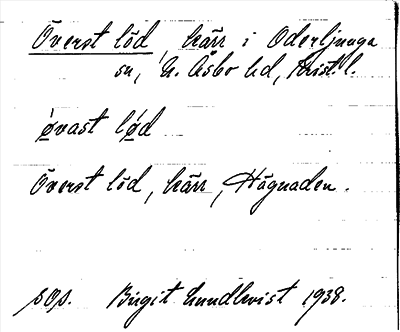 Överst löd, kärr i Oderljunga
sn, N. Åsbo hd, Krist. l.
ø̀vast lø̀d
Överst löd, kärr, Hägnaden.
sos. Birgit Lundkvist 1938.